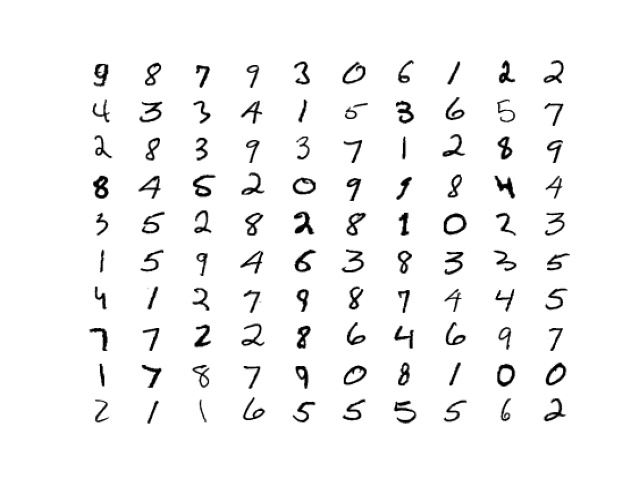 9 8 7 9 3 0 6 1 2 2
4 3 3 4 1 5 3 6 5 7
2 8 3 9 3 7 1 2 8 9
8 4 5 2 0 9 1 8 4 4
3 5 2 8 2 8 1 0 2 3
1 5 9 4 6 3 8 3 3 5
4 1 2 7 9 8 7 4 4 5
7 7 2 2 8 6 4 6 9 7
1 7 8 7 9 0 8 1 0 0
2 1 1 6 5 5 5 5 6 2